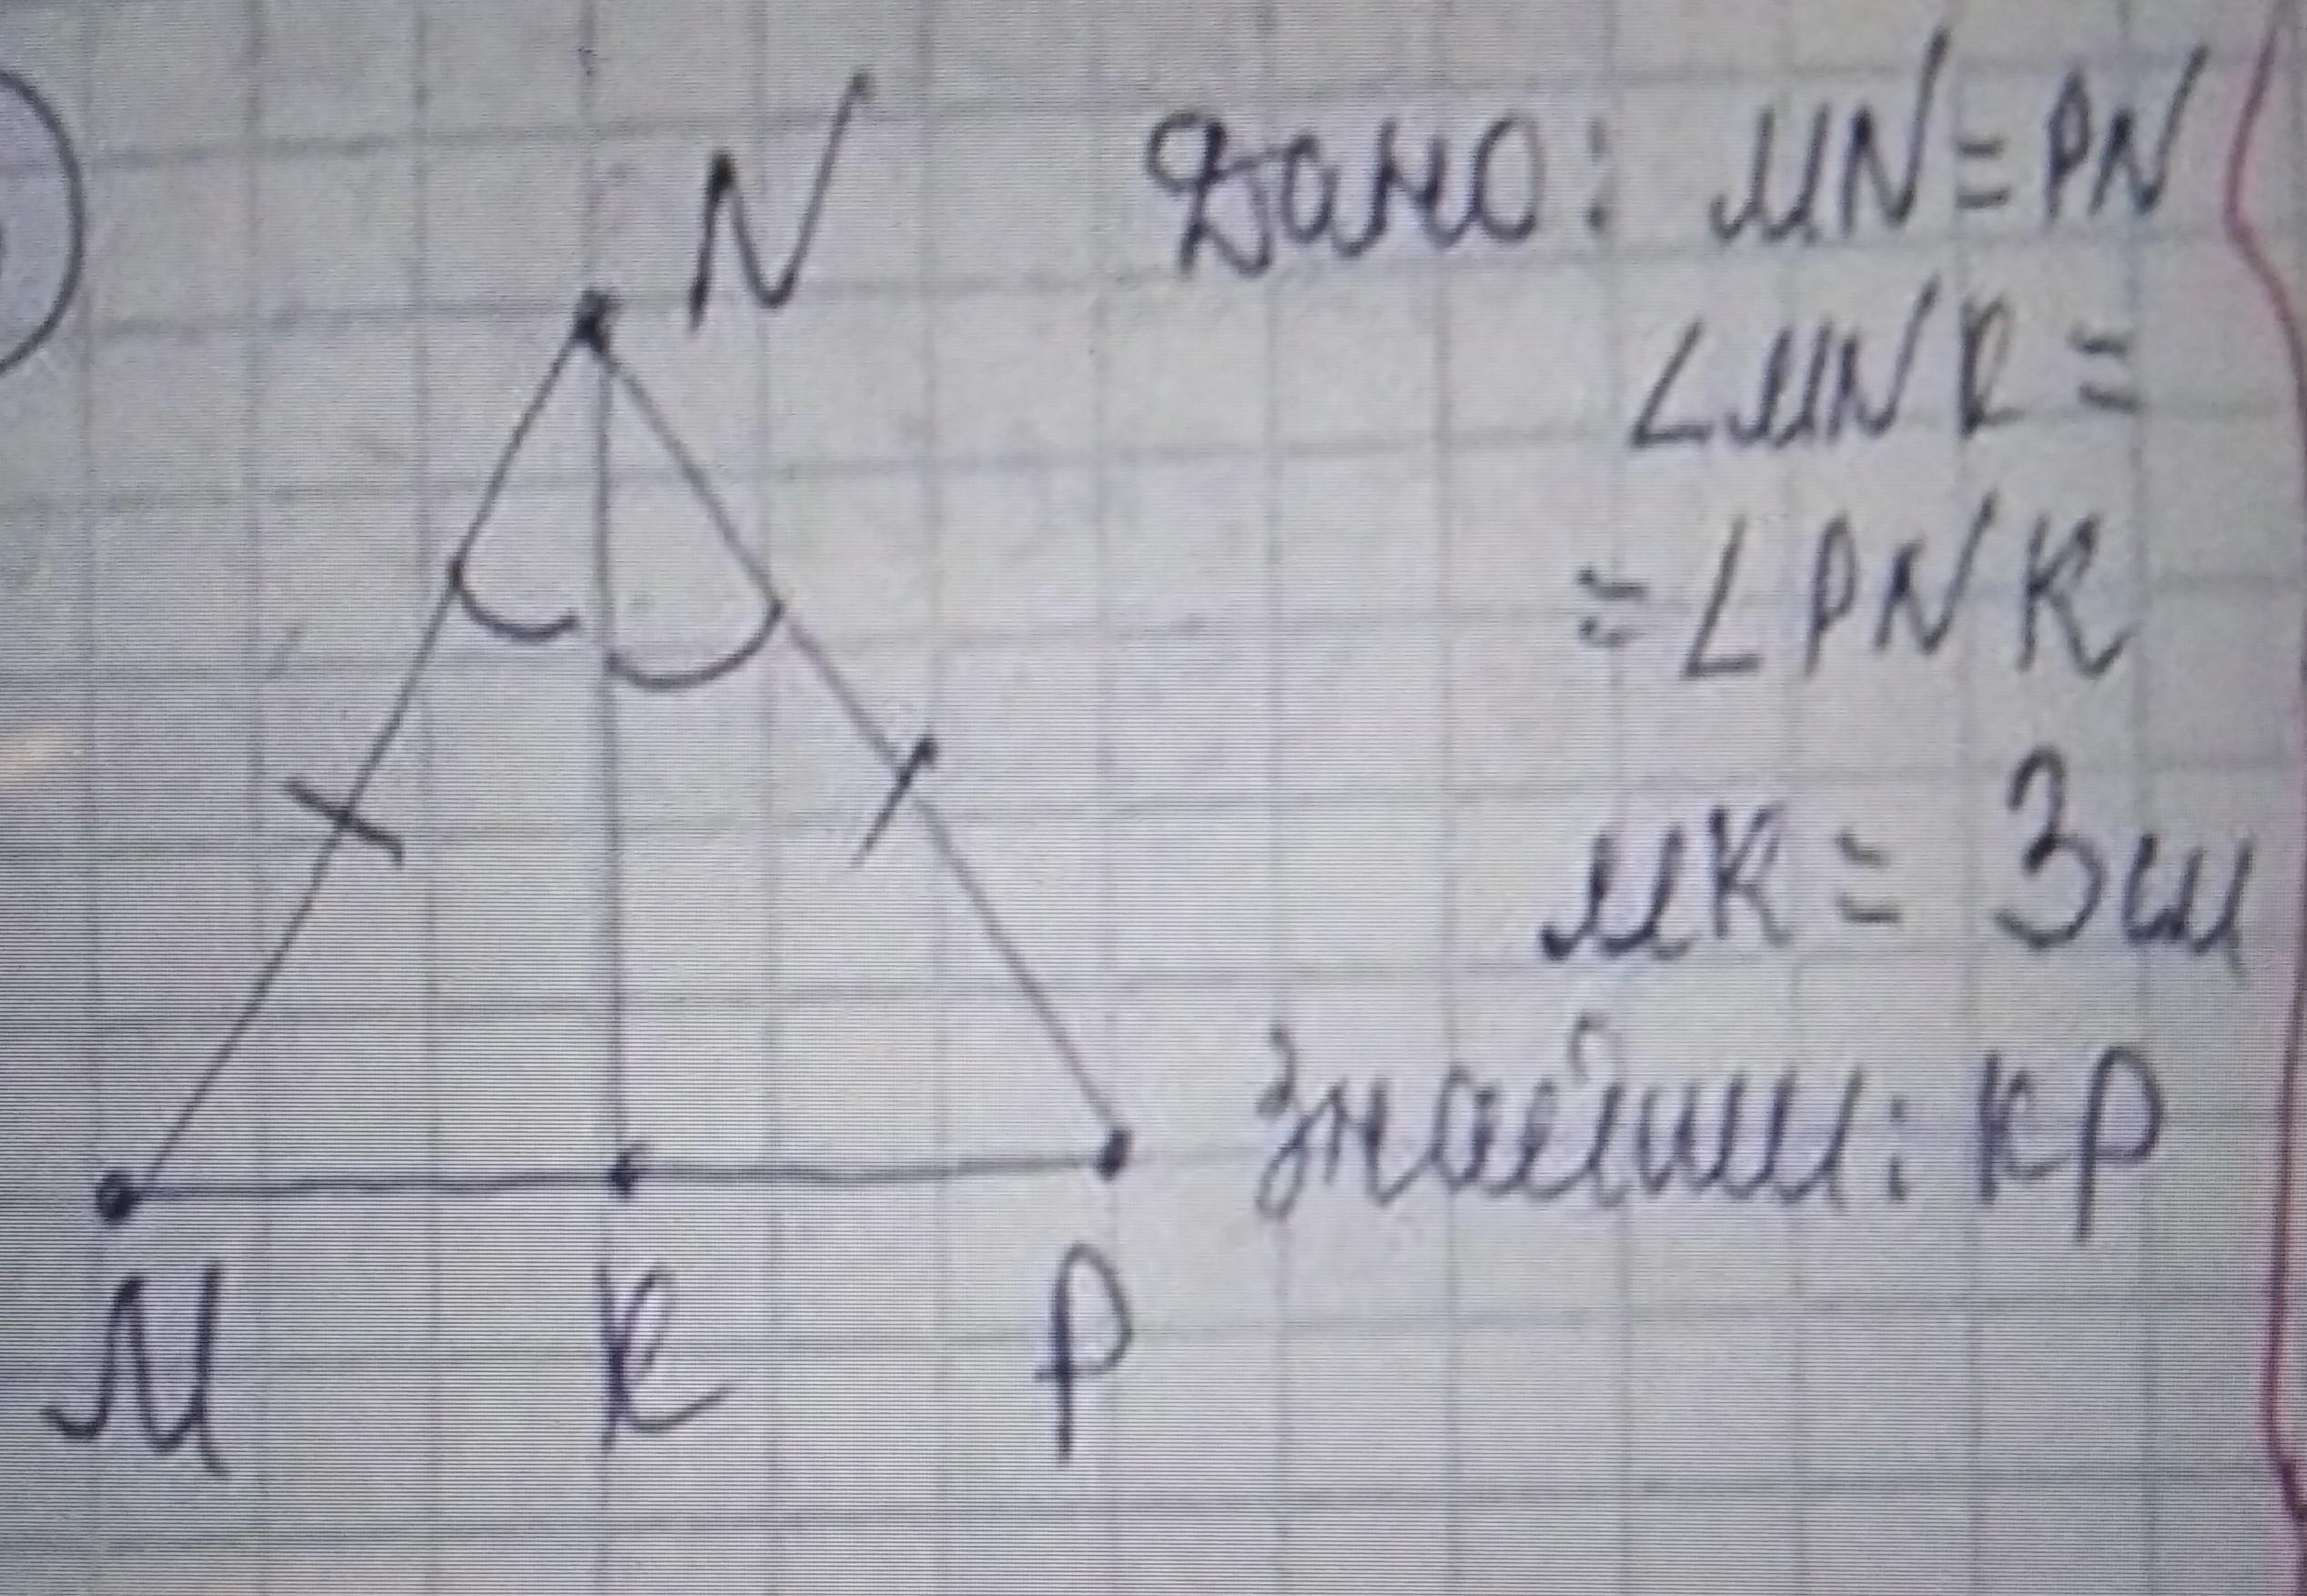 N
Дано: MN = PN
∠MNK =
= ∠PNK
MK = 3 см
Знайти: KP
M K P